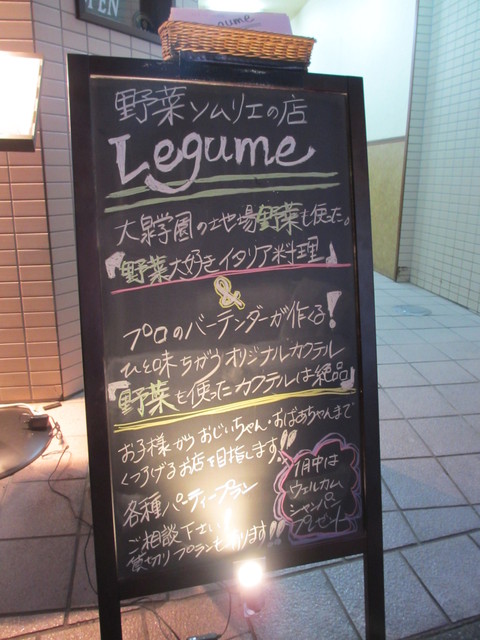 TEN
gume
野菜ソムリエの店
Legume
大泉学園の地場野菜も使った。
『野菜大好きイタリア料理』
&
プロのバーテンダーが作くる!
ひと味ちがうオリジナルカクテル
『野菜を使ったカクテルは絶品』
お子様からおじいちゃん・おばあちゃんまで
くつろげるお店を目指します!!
各種パーティープラン
ご相談下さい!
貸切りプランも有ります!!
1月中は
ウェルカム
シャンパン
プレゼント